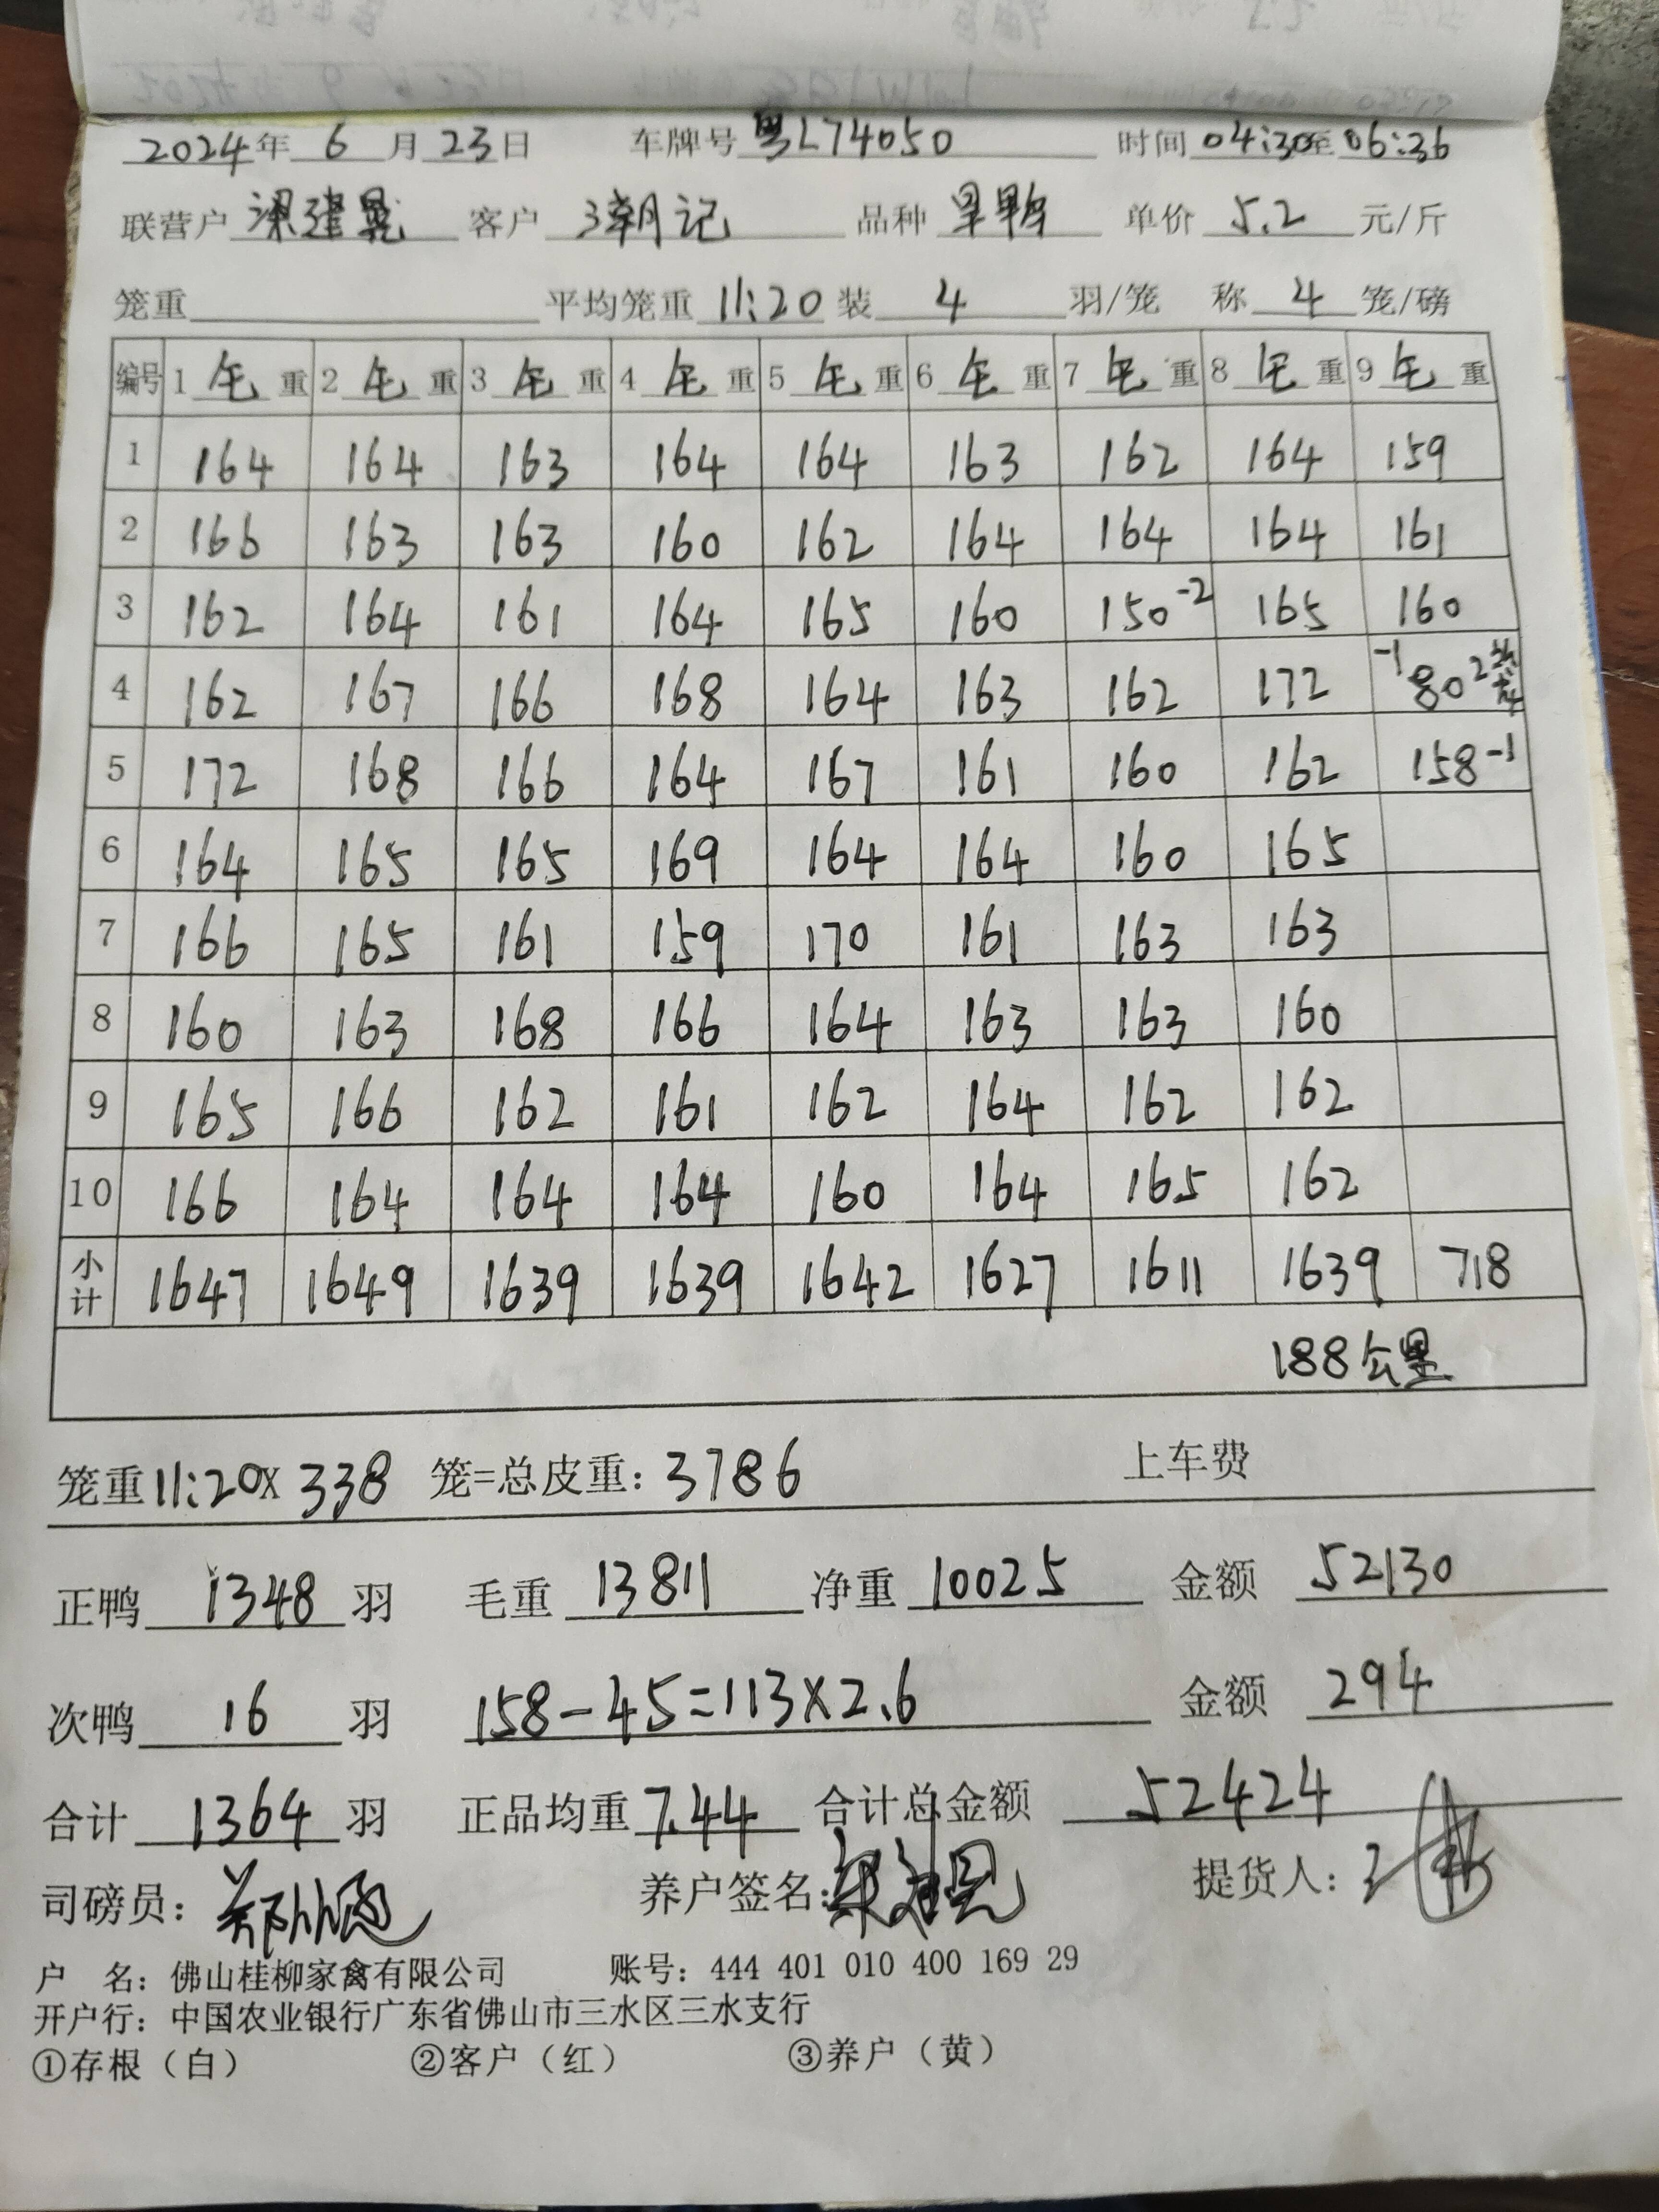 2024年 6 月 23 日 车牌号 粤L74050 时间 04:30至06:36
联营户 梁建晃 客户 潮记 品种 旱鸭 单价 5.2 元/斤
笼重 平均笼重 11:20 装 4 羽/笼 称 4 笼/磅
编号 1 毛 重 2 毛 重 3 毛 重 4 毛 重 5 毛 重 6 毛 重 7 毛 重 8 毛 重 9 毛 重
1 164 164 163 164 164 163 162 164 159
2 166 163 163 160 162 164 164 164 161
3 162 164 161 164 165 160 150-2 165 160
4 162 167 166 168 164 163 162 172 -1 80 2
5 172 168 166 164 167 161 160 162 158-1
6 164 165 165 169 164 164 160 165
7 166 165 161 159 170 161 163 163
8 160 163 168 166 164 163 163 160
9 165 166 162 161 162 164 162 162
10 166 164 164 164 160 164 165 162
小计 1647 1649 1639 1639 1642 1627 1611 1639 718
188公里
笼重11:20X 338 笼=总皮重: 3786 上车费
正鸭 1348 羽 毛重 13811 净重 10025 金额 52130
次鸭 16 羽 158-45=113X2.6 金额 294
合计 1364 羽 正品均重 7.44 合计总金额 52424
司磅员: 养户签名: 提货人:
户 名: 佛山桂柳家禽有限公司 账号: 444 401 010 400 169 29
开户行: 中国农业银行广东省佛山市三水区三水支行
①存根（白） ②客户（红） ③养户（黄）